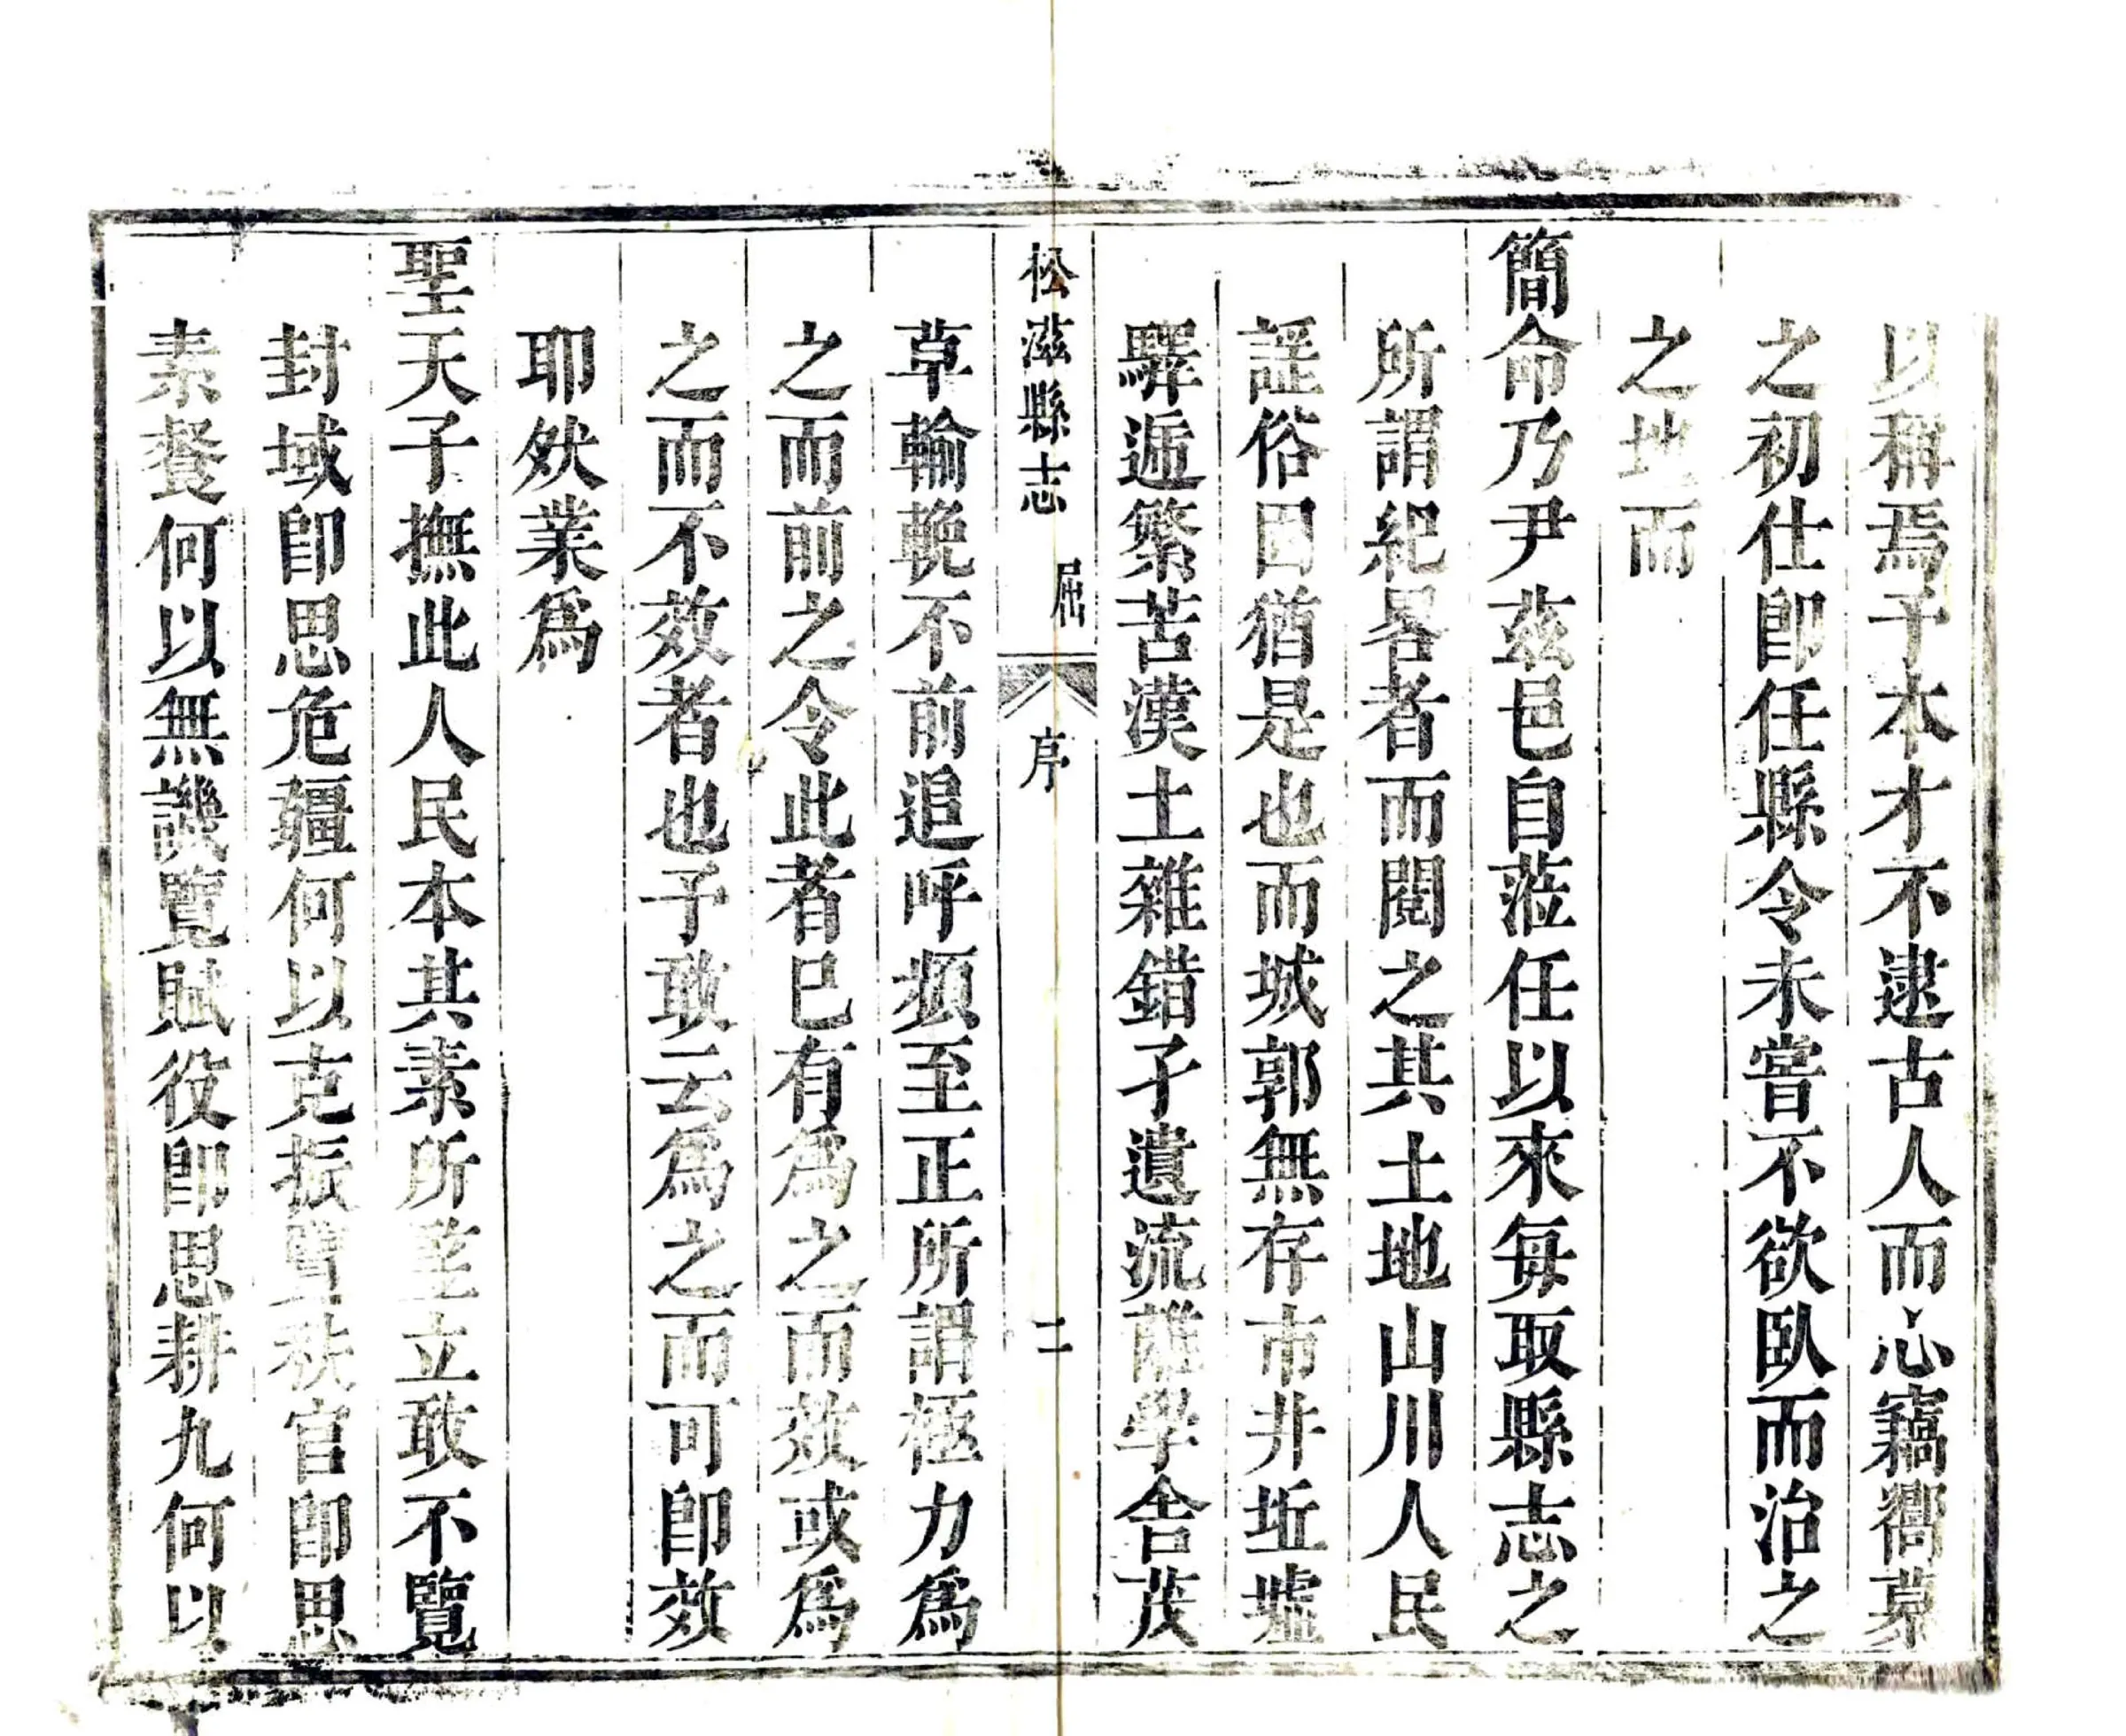 以稱焉予本才不逮古人而心竊嚮慕
之初仕卽任縣令未嘗不欲臥而治之
之地而
簡命乃尹茲邑自蒞任以來每取縣志之
所謂紀畧者而閱之其土地山川人民
謡俗固猶是也而城郭無存市井坵墟
驛遞繁苦漢土雜錯孑遺流離學舍茂
松滋縣志 屈 序 二
草輸輓不前追呼頻至正所謂極力爲
之而前之令此者巳有爲之而效或爲
之而不效者也予敢云爲之而可卽效
耶然業爲
聖天子撫此人民本其素所莖立敢不覽
封域卽思危疆何以克振覽秩官卽思
素餐何以無譏覽賦役卽思耕九何以